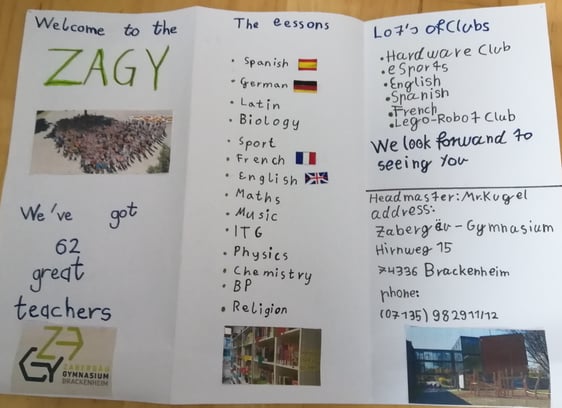 Welcome to the
ZAGY
We've got
62
great
teachers
ZABERGÄU
GYMNASIUM
BRACKENHEIM
The eessons
• Spanish
• German
• Latin
• Biology
• Sport
• French
• English
• Maths
• Music
• ITG
• Physics
• Chemistry
• BP
• Religion
Lot's of Clubs
• Hardware Club
• eSports
• English
• Spanish
• French
• Lego-Robot Club
We look forward to
seeing you
Headmaster: Mr. Kugel
address:
Zabergäu-Gymnasium
Hirnweg 15
74336 Brackenheim
phone:
(07135) 982911/12